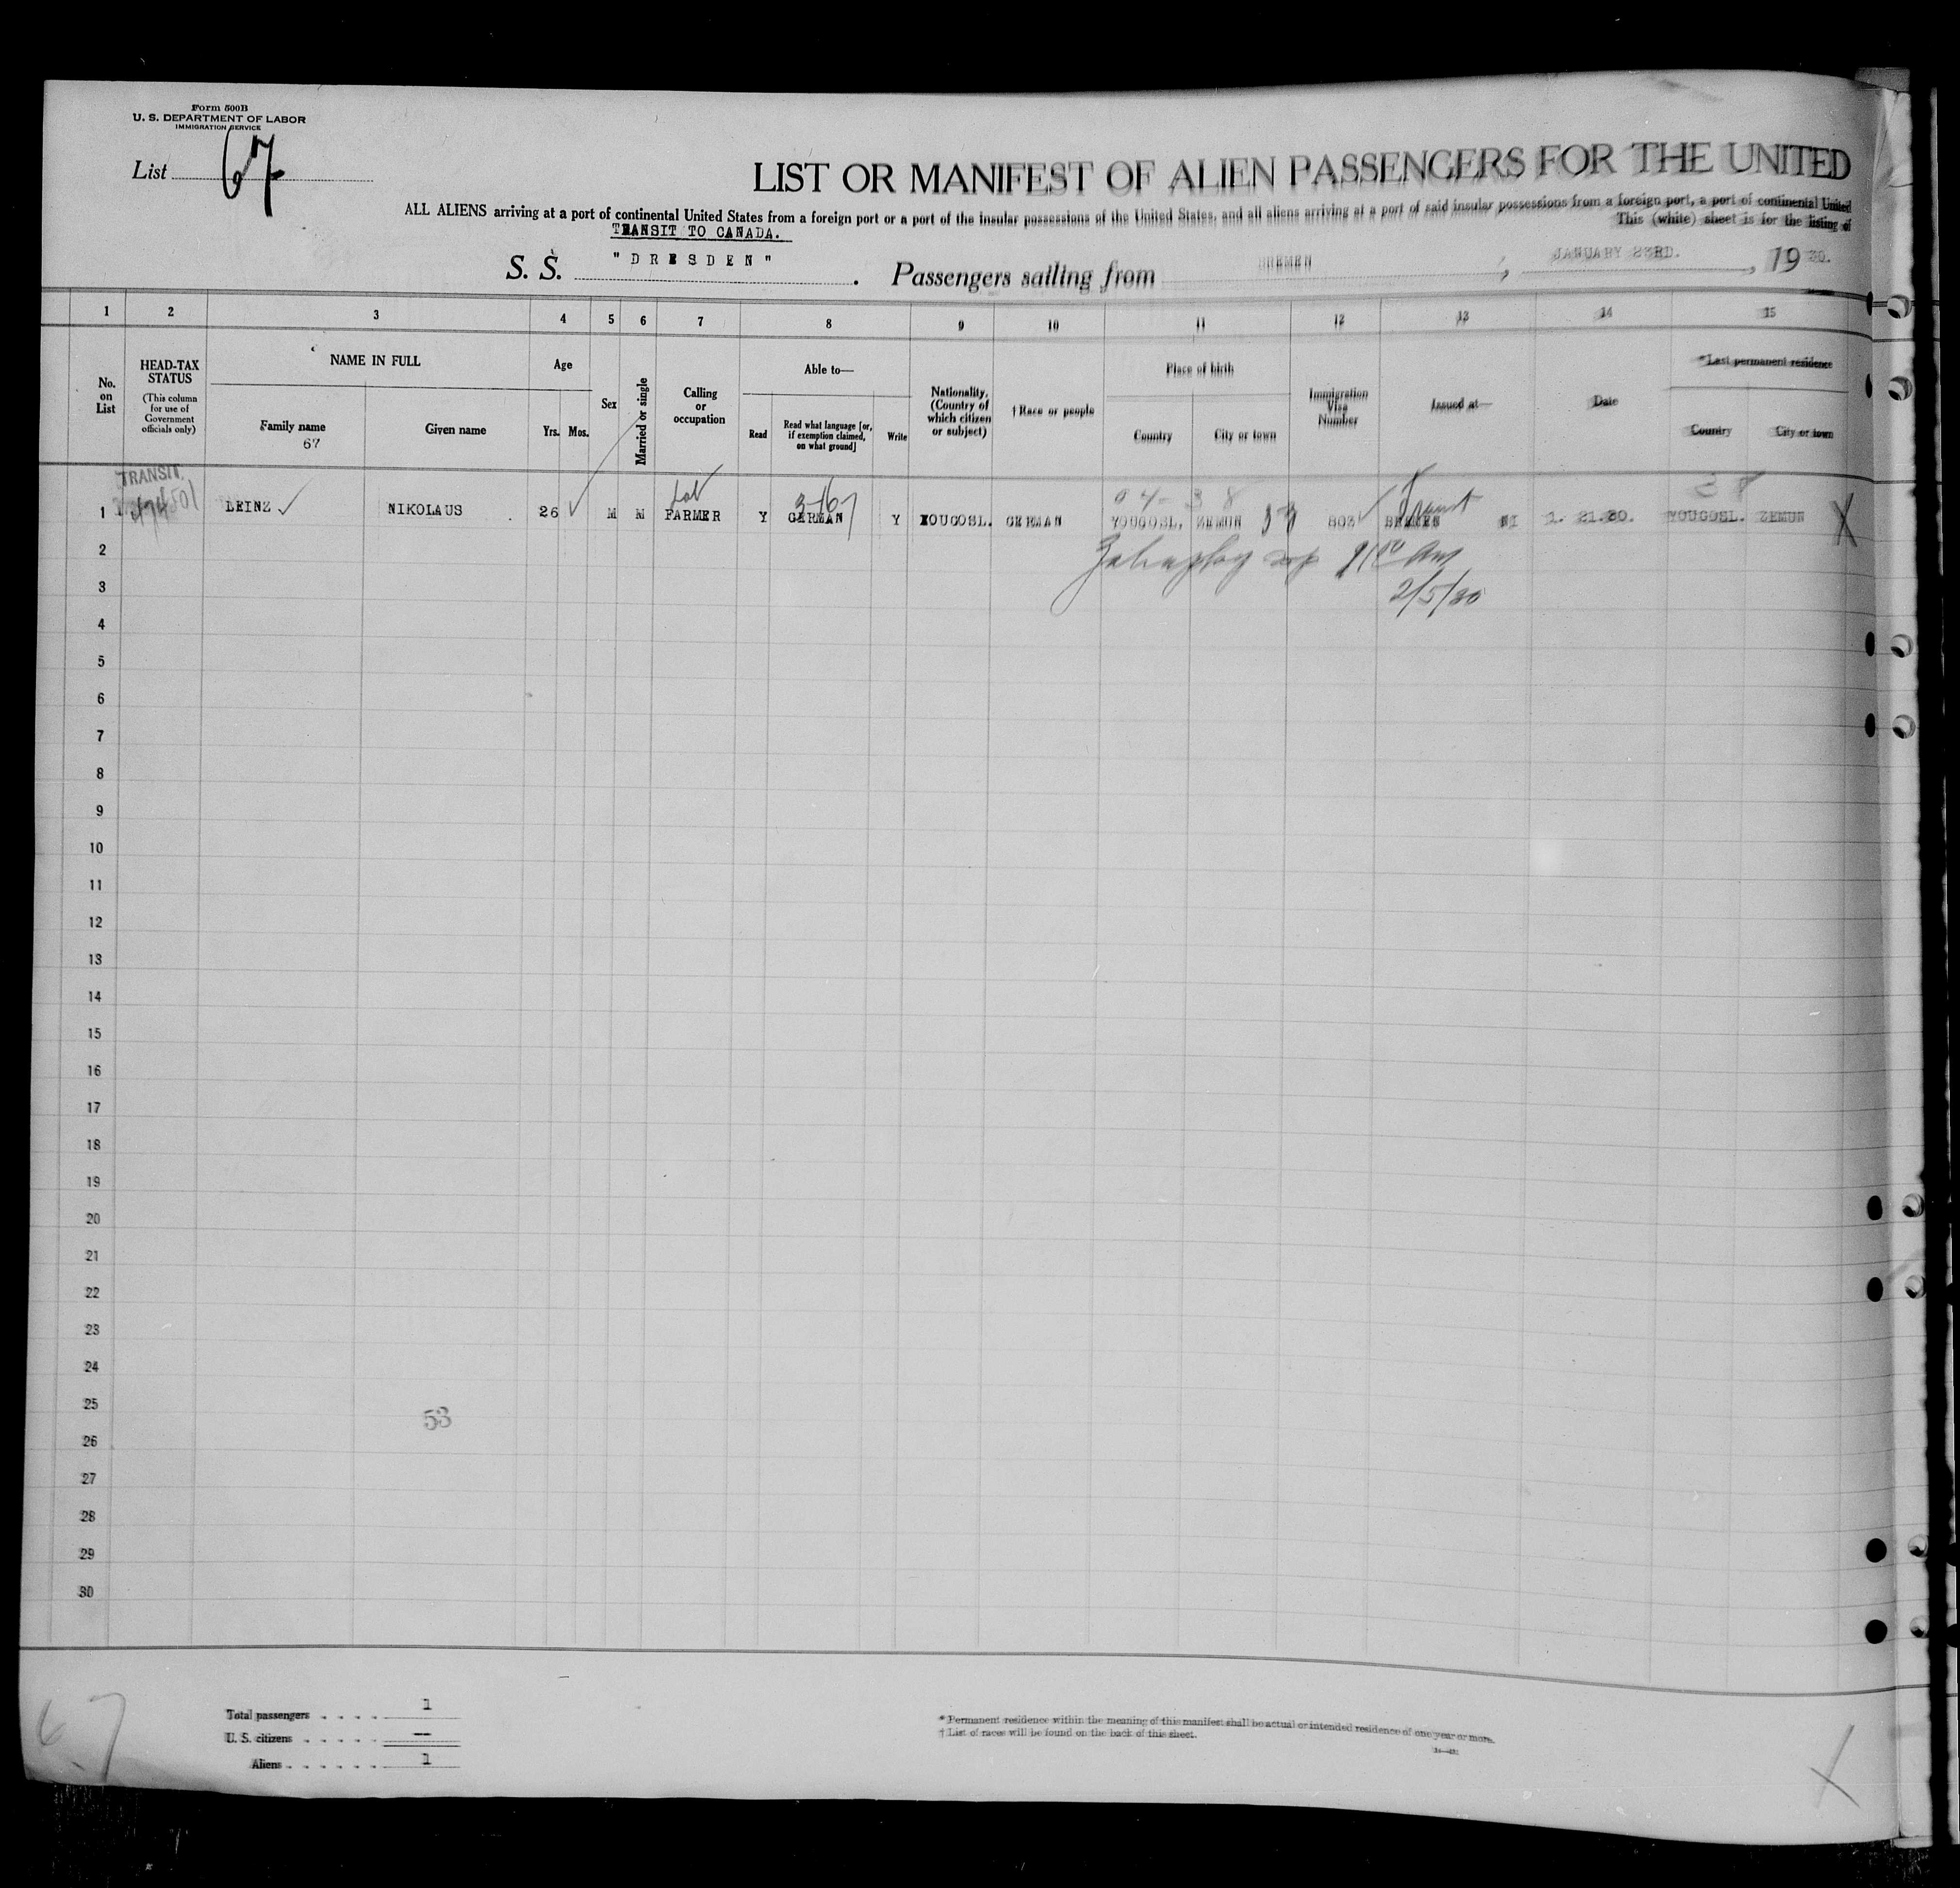 Form 500B
U. S. DEPARTMENT OF LABOR
IMMIGRATION SERVICE
List 67
LIST OR MANIFEST OF ALIEN PASSENGERS FOR THE UNITED
ALL ALIENS arriving at a port of continental United States from a foreign port or a port of the insular possessions of the United States, and all aliens arriving at a port of said insular possessions from a foreign port, a port of continental United
This (white) sheet is for the listing of
TRANSIT TO CANADA.
S. S. "DRESDEN". Passengers sailing from BREMEN, JANUARY 23RD., 1930.
1 2 3 4 5 6 7 8 9 10 11 12 13 14 15
No. on List
HEAD-TAX STATUS (This column for use of Government officials only)
NAME IN FULL
Family name
67
Given name
Age
Yrs. Mos.
Sex
Married or single
Calling or occupation
Able to—
Read
Read what language [or, if exemption claimed, on what ground]
Write
Nationality. (Country of which citizen or subject)
† Race or people
Place of birth
Country
City or town
Immigration Visa Number
Issued at—
Date
*Last permanent residence
Country
City or town
TRANSIT.
Lab 3-16 04- 38 Transit 38
1 LEINZ NIKOLAUS 26 M M FARMER Y GERMAN Y YOUGOSL. GERMAN YOUGOSL. ZEMUN 33 803 BREMEN NI 1. 21.30. YOUGOSL. ZEMUN X
2
2/5/30
3
4
5
6
7
8
9
10
11
12
13
14
15
16
17
18
19
20
21
22
23
24
25
53
26
27
28
29
30
67
Total passengers . . . . 1
U. S. citizens . . . . . —
Aliens . . . . . . 1
* Permanent residence within the meaning of this manifest shall be actual or intended residence of one year or more.
† List of races will be found on the back of this sheet.
X